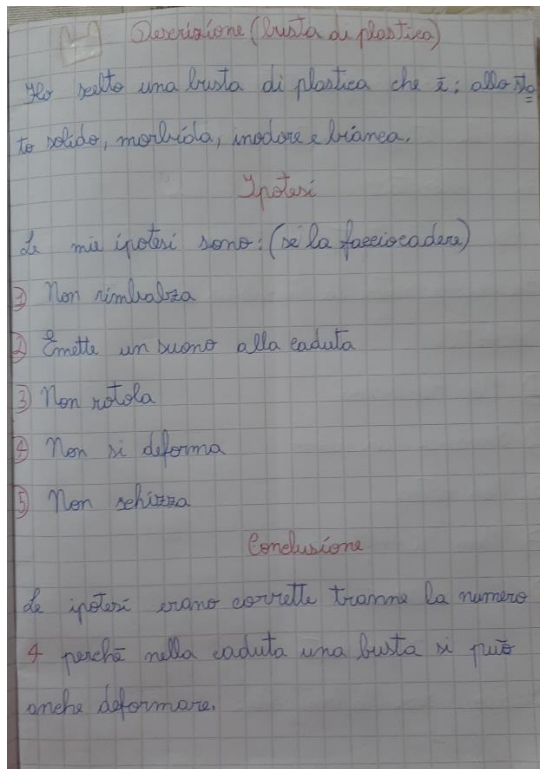 Descrizione (busta di plastica)
Ho scelto una busta di plastica che è: allo sta
to solido, morbida, inodore e bianca.
Ipotesi
Le mie ipotesi sono: (se la facciocadere)
1 Non rimbalza
2 Emette un suono alla caduta
3 Non rotola
4 Non si deforma
5 Non schizza
Conclusione
Le ipotesi erano corrette tranne la numero
4 perchè nella caduta una busta si può
anche deformare.